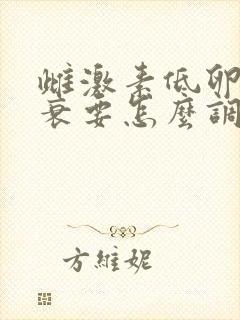 雌激素低卵
衰要怎麼調
方維妮